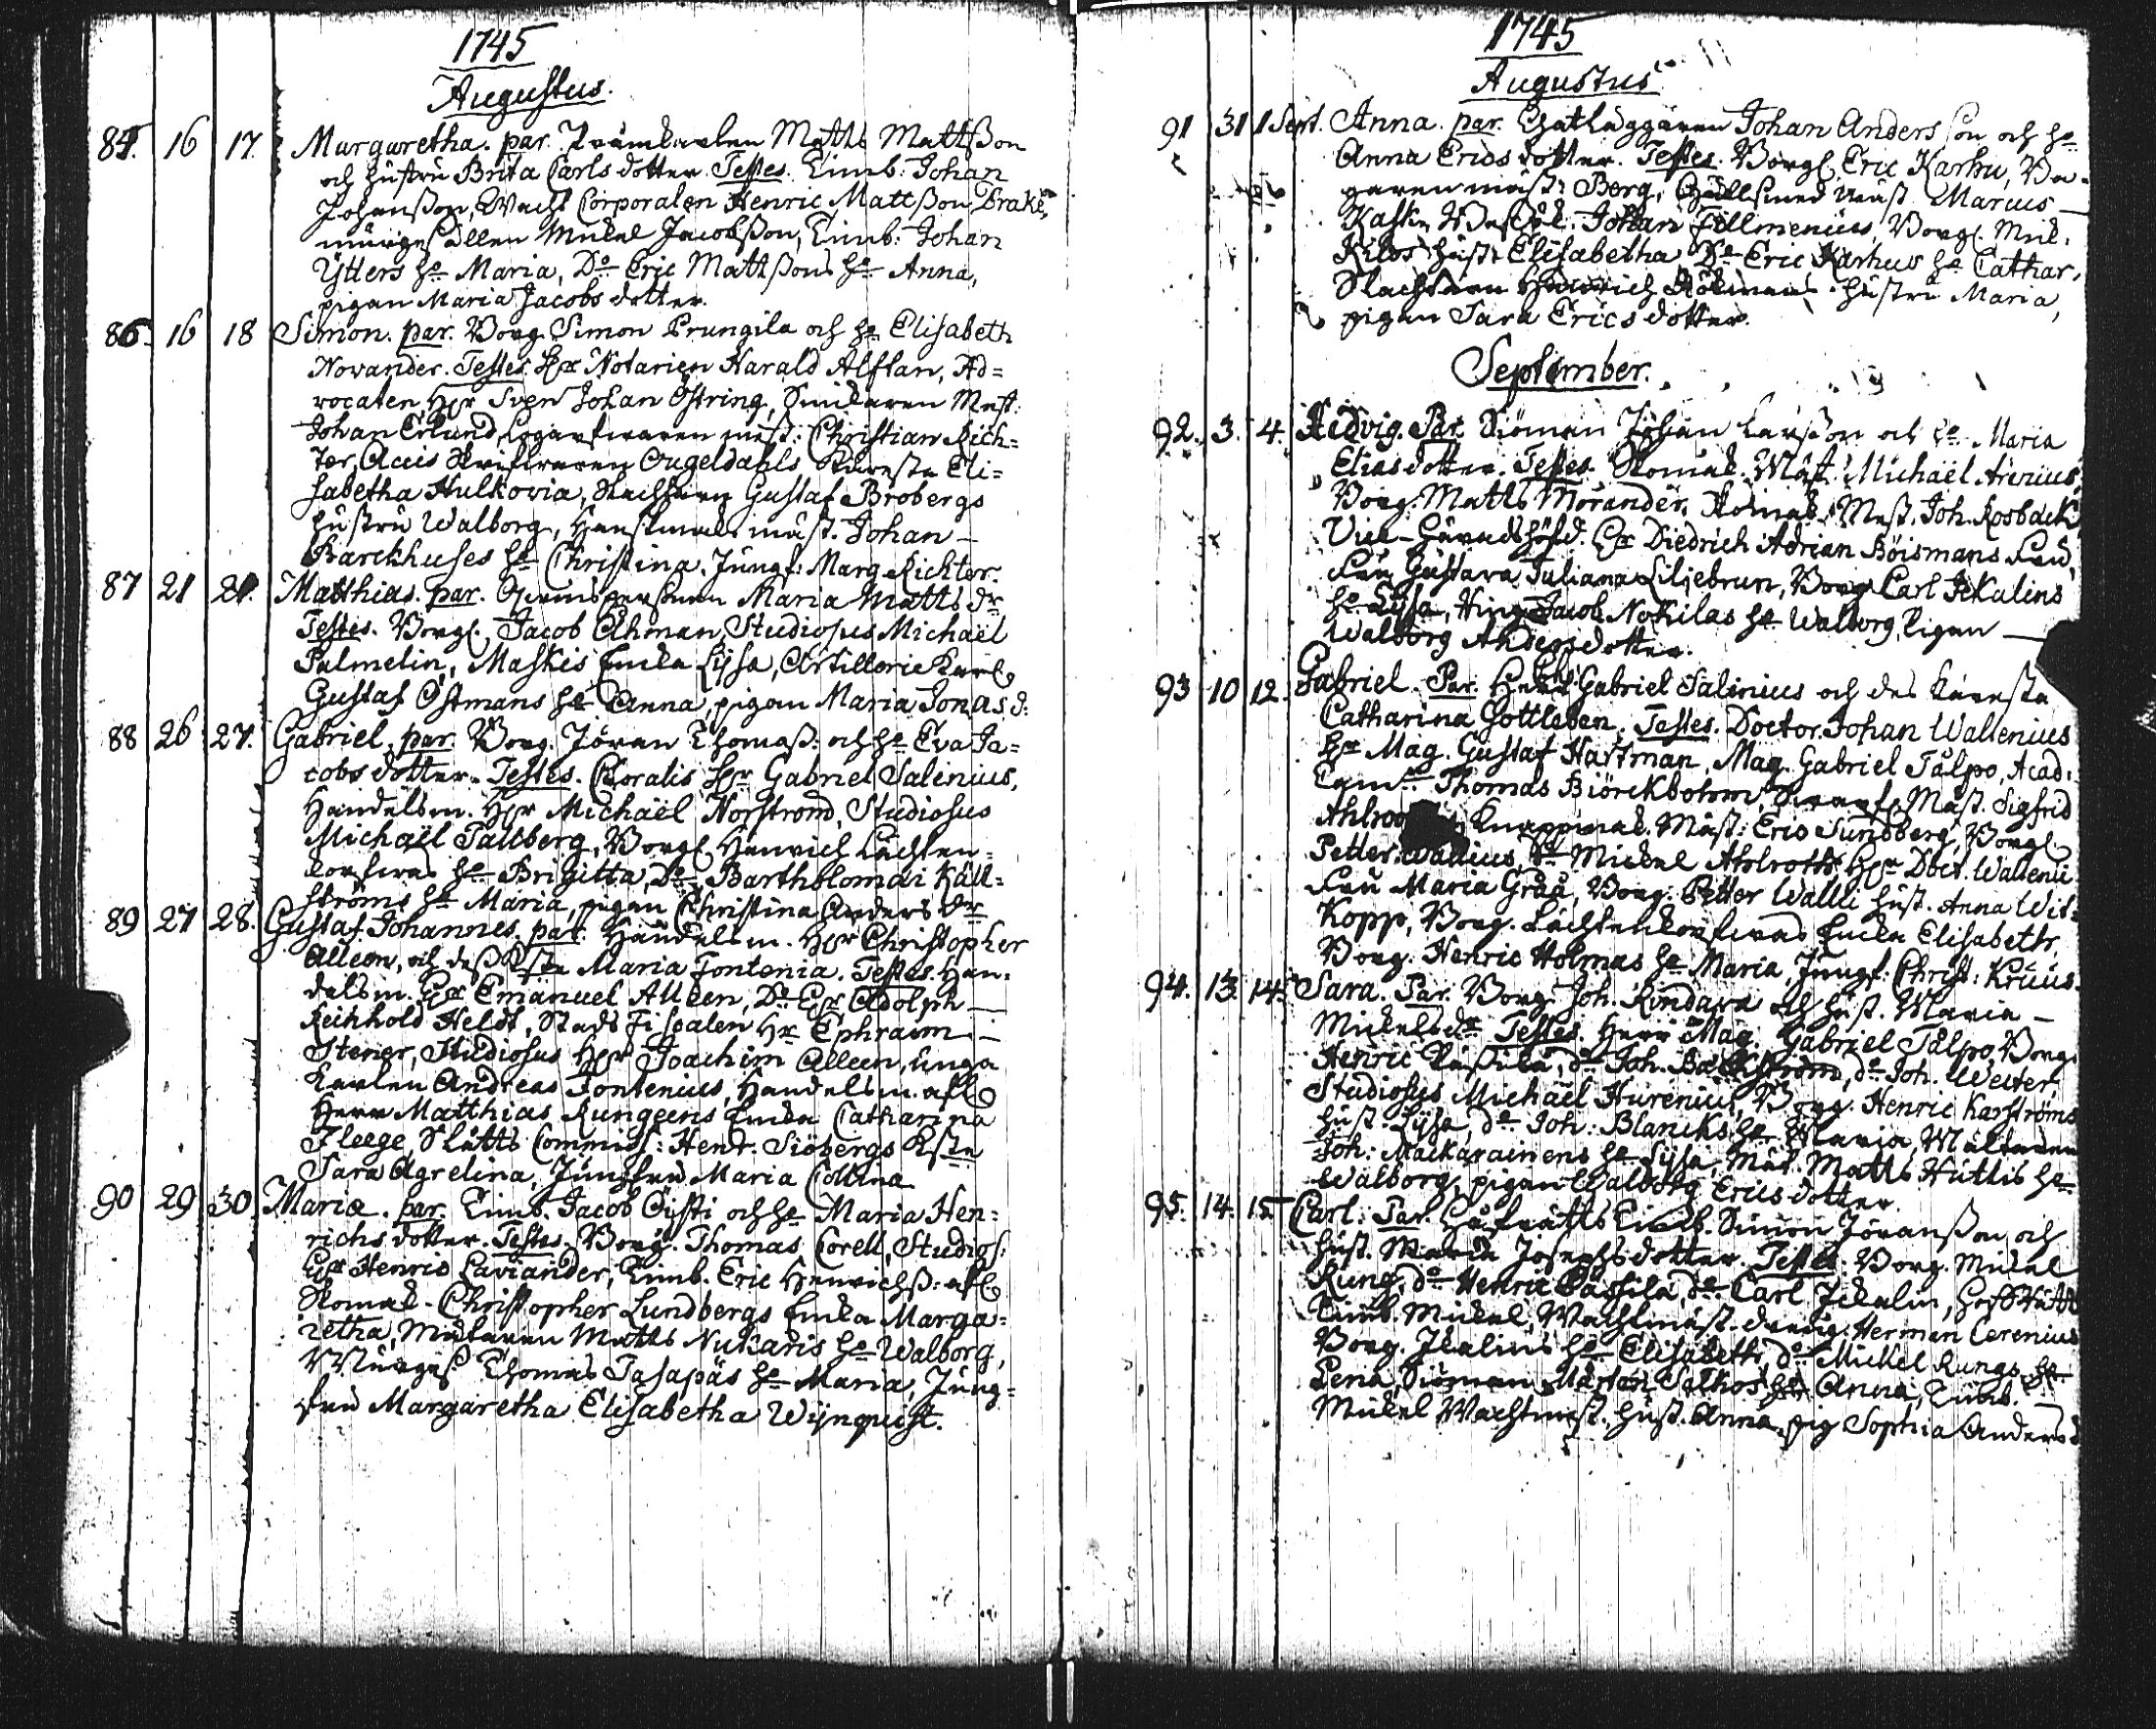 1745
Augustus.
85. 16 17. Margaretha. par. Matts Mattßon
och hustru Brita Carls dotter. Testes. Timb. Johan
Johanßon, Corporalen Henric Mattßon Drake,
murgesällen Mickel Jacobßon, Timb: Johan
Ytters he Maria, Do Eric Mattßons he Anna,
pigan Maria Jacobs dotter.
86. 16 18 Simon. par. Borg. Simon Prungila och he Elisabeth
Novander. Testes. Hr Notarien Harald Alftan, Ad=
vocaten Hr Sven Johan Östring, Mest.
Johan Erlund, mäst: Christian Rich=
ter, Accis Eli=
sabetha Hulkovia, Gustaf Brobergs
hustru Walborg, Handskmak. mäst. Johan
Barckhuses he Christina. Jungf: Marg. Richter.
87 21 21. Matthias. par. Maria Matts dr
Testes. Borg. Jacob Åhman, Studiosus Michaël
Palmelin, Maskis Encka Lysa, Artillerie Karl
Gustaf Östmans he Anna, pigan Maria Jonas d:
88 26 27. Gabriel. par. Borg. Jöran Thomaß. och he Eva Ja=
cobs dotter. Testes. Choralis Hr Gabriel Salenius,
Handelsm. Hr Michaël Norström, Studiosus
Michaël Tallberg, Borg. Henrich Lichten=
he Brigitta, Do Bartholomæi Käll=
ströms he Maria, pigan Christina Anders dr
89 27 28. Gustaf Johannes. par. Handelsm. Hr Christopher
Alleen, och deß Kste Maria Fontenia. Testes. Han=
delsm. Hr Emanuel Alleen, Do Hr Adolph
Reinhold Heldt, Stads Fiscalen Hr Ephraim
Stener, Studiosus Hr Joachim Alleen, unga
Karlen Andreas Fontenius, Handelsm. afl.
Herr Matthias Rungeens Encka Catharina
Fleege, Slåtts Commiss: Henr. Siöbergs Kste
Sara Agrelina, Jungfru Maria Collina
90 29 30. Maria. par. Timb. Jacob Oisti och he Maria Hen=
richs dotter. Testes. Borg. Thomas Corell, Studios:
Hr Henric Laviander, Timb. Eric Henrichß: afl.
Skomak. Christopher Lundbergs Encka Marga=
retha, Matts Nukaris he Walborg,
Murgeß Thomas Tasapäs he Maria, Jung=
fru Margaretha Elisabetha Wijnquist.
1745
Augustus
91 31 1 Sept. Anna. par. Gatläggaren Johan Anders son och he
Anna Erics dotter. Testes. Borg. Eric Karhu, Ba=
garen mäst: Berg, mäst Marcus
Johan Fillmenius, Borg. Mic.
Kilos hust. Elisabetha Do Eric Karhus he Cathar,
Slachtaren hustru Maria,
pigan Sara Erics dotter.
September.
92. 3. 4. Hedvig. Par. Siöman Johan Larßon och he Maria
Elias dotter. Testes. Skomak. Mäst. Michaël Arenius,
Borg. Matts Morander, Skomak. Mest. Joh. Rosback
Vice-Häradshöfd. Hr Diedrich Adrian Böismans Fru,
Fru Gustava Juliana Liljebrun, Borg. Carl Ickalins
he Lysa, Jacob Nokilas he Walborg, Pigan
Walborg Anders dotter.
93 10 12. Gabriel. Par. Herr Gabriel Salinius och des Käresta
Catharina Gottleben, Testes. Doctor. Johan Wallenius
Hr Mag. Gustaf Hartman, Mag. Gabriel Tålpo, Acad.
Thomas Biörckbohm, Mäst. Sigfrid
Knappmak. Mäst: Eric Sundberg, Borg.
Petter Wallius, Do Mickel Ahlroth, Hr Doct. Wallenii
Fru Maria Gråå, Borg. Petter Wallii hust. Anna Wit=
Kopp, Borg. Encka Elisabeth,
Borg. Henric Holmas he Maria, Jungf: Christ: Kruus.
94. 13. 14. Sara. Par. Borg. Joh. Rindara och hust. Maria
Mickels dr Testes. Herr Mag. Gabriel Tålpo, Borg.
Henric do Joh. Bäckström, do Joh. Wester,
Studiosus Michaël Hurenius, Borg. Henric Karströms
hust. Lysa, do Joh: Blancks he Maria,
Joh: Maikarainens he Lysa, Matts Huttis he
Walborg, pigan Walborg Erics dotter
95. 14. 15 Carl. Par. Hofrätts Timb. Simon Jöranßon och
hust. Maria Josephs dotter. Testes. Borg. Mickel
Rung, do Henric Passila, do Carl Ickalin, Hofrätt
Timb. Mickel Wachtmäst. Herman Cerenius
Borg. Ikalins he Elisabeth, do Mickel Rungs he
Siöman Mårten he Anna, Timb.
Mickel Wachtmest. hust. Anna, pig Sophia Anders d